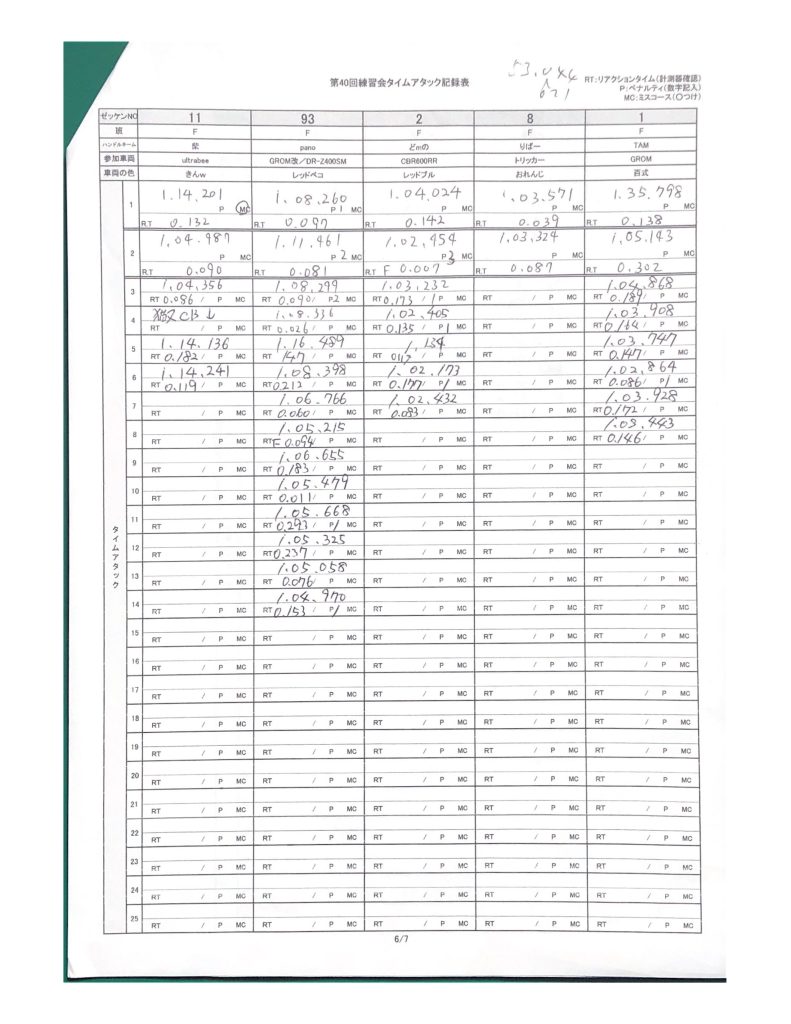 53.044
021
第40回練習会タイムアタック記録表
RT:リアクションタイム(計測器確認)
P:ペナルティ(数字記入)
MC:ミスコース(○つけ)
ゼッケンNO 11 93 2 8 1
班 F F F F F
ハンドルネーム 柴 pano どmの りばー TAM
参加車両 ultrabee GROM改/DR-Z400SM CBR600RR トリッカー GROM
車両の色 きんw レッドペコ レッドブル おれんじ 百式
タイムアタック
1 1.14.201 1.08.260 1.04.024 1.03.571 1.35.798
P MC P 1 MC P MC P MC P MC
RT 0.132 RT 0.097 RT 0.142 RT 0.039 RT 0.138
2 1.04.987 1.11.461 1.02.454 1.03.324 1.05.143
P MC P 2 MC P 3 MC P MC P MC
RT 0.090 RT 0.081 RT F 0.007 RT 0.087 RT 0.302
3 1.04.356 1.08.299 1.03.232 1.04.868
RT 0.086 / P MC RT 0.090 / P2 MC RT 0.173 / 1 P MC RT / P MC RT 0.189 / P MC
4 CB ↓ 1.08.336 1.02.405 1.03.908
RT / P MC RT 0.026 / P MC RT 0.135 / P1 MC RT / P MC RT 0.164 / P MC
5 1.14.136 1.16.489 1.03.747
RT 0.182 / P MC RT 147 / P MC RT / P MC RT / P MC RT 0.147 / P MC
6 1.14.241 1.08.398 1.02.173 1.02.864
RT 0.119 / P MC RT 0.212 / P MC RT 0.177 / P1 MC RT / P MC RT 0.086 / P1 MC
7 1.06.766 1.02.432 1.03.928
RT / P MC RT 0.060 / P MC RT 0.083 / P MC RT / P MC RT 0.172 / P MC
8 1.05.215 1.03.443
RT / P MC RT F 0.094 P MC RT / P MC RT / P MC RT 0.146 / P MC
9 1.06.655
RT / P MC RT 0.183 / P MC RT / P MC RT / P MC RT / P MC
10 1.05.479
RT / P MC RT 0.011 / P MC RT / P MC RT / P MC RT / P MC
11 1.05.668
RT / P MC RT 0.293 / P1 MC RT / P MC RT / P MC RT / P MC
12 1.05.325
RT / P MC RT 0.237 / P MC RT / P MC RT / P MC RT / P MC
13 1.05.058
RT / P MC RT 0.076 P MC RT / P MC RT / P MC RT / P MC
14 1.04.970
RT / P MC RT 0.153 / P1 MC RT / P MC RT / P MC RT / P MC
15
RT / P MC RT / P MC RT / P MC RT / P MC RT / P MC
16
RT / P MC RT / P MC RT / P MC RT / P MC RT / P MC
17
RT / P MC RT / P MC RT / P MC RT / P MC RT / P MC
18
RT / P MC RT / P MC RT / P MC RT / P MC RT / P MC
19
RT / P MC RT / P MC RT / P MC RT / P MC RT / P MC
20
RT / P MC RT / P MC RT / P MC RT / P MC RT / P MC
21
RT / P MC RT / P MC RT / P MC RT / P MC RT / P MC
22
RT / P MC RT / P MC RT / P MC RT / P MC RT / P MC
23
RT / P MC RT / P MC RT / P MC RT / P MC RT / P MC
24
RT / P MC RT / P MC RT / P MC RT / P MC RT / P MC
25
RT / P MC RT / P MC RT / P MC RT / P MC RT / P MC
6/7